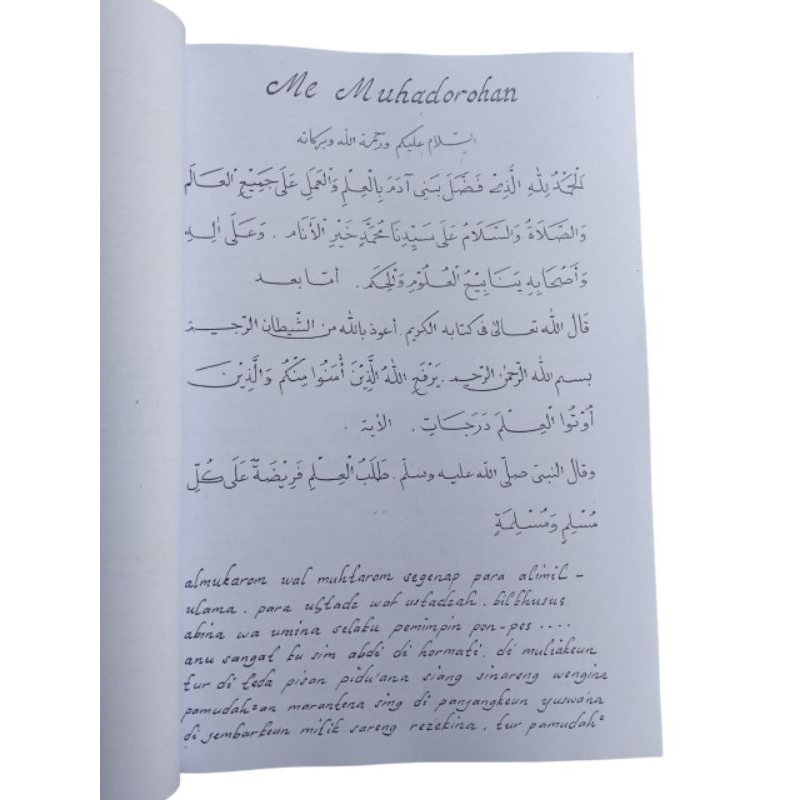 Me Muhadorohan
السّلام عليكم ورحمة الله وبركاته
اَلْحَمْدُ لِلّٰهِ الَّذِيْ فَضَّلَ بَنِى آدَمَ بِالْعِلْمِ وَالْعَمَلِ عَلَى جَمِيْعِ الْعَالَم
وَالصَّلَاةُ وَالسَّلَامُ عَلَى سَيِّدِنَا مُحَمَّدٍ خَيْرِ الْأَنَام . وَعَلَى اٰلِهِ
وَأَصْحَابِهِ يَنَابِيْعِ الْعُلُوْمِ وَالْحِكَم . أمّا بعد
قَالَ اللّٰه تعالىٰ فى كتابه الكريم . أعوذ بالله من الشّيطان الرّجيم
بسم الله الرّحمٰن الرّحيم . يَرْفَعِ اللهُ الَّذِيْنَ أٰمَنُوا مِنْكُم وَالَّذِيْنَ
أُوْتُوا الْعِلْمَ دَرَجَاتٍ . الأية .
وقال النبيّ صلّى اللّه عليه وسلّم . طَلَبُ الْعِلْمِ فَرِيْضَةٌ عَلَى كُلِّ
مُسْلِمٍ وَمُسْلِمَةٍ
almukarom wal muhtarom segenap para alimil -
ulama. para ustadz wal ustadzah. bilkhusus
abina wa umina selaku pemimpin pon-pes ....
anu sangat ku sim abdi di hormati, di muliakeun
tur di teda pisan pidu'ana siang sinareng wengina
pamudah²an marantena sing di panjangkeun yuswana
di jembarkeun milik sareng rezekina, tur pamudah²